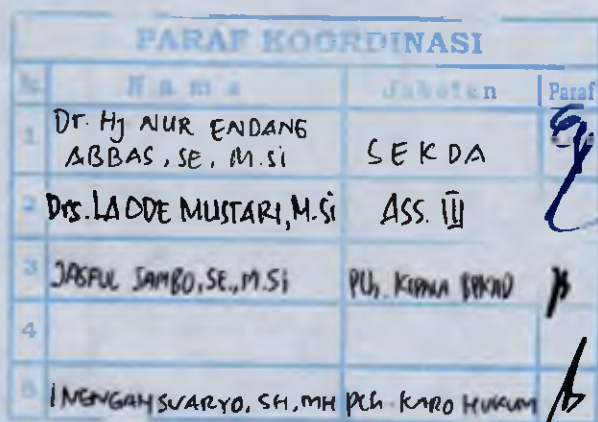 PARAF KOORDINASI
No Nama Jabatan Paraf
1 Dr. Hj NUR ENDANG
ABBAS, SE, M.si SEKDA
2 Drs. LA ODE MUSTARI, M.Si ASS. III
3 SE., M.Si Plh. BPKAD
4
5 I NENGAH SUARYO, SH, MH Plh. KARO HUKUM